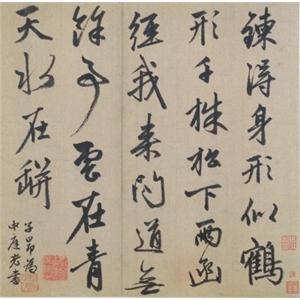 鍊得身形似鶴
形千株松下兩函
經我來問道無
餘事雲在青
天水在缾
子昂為
書